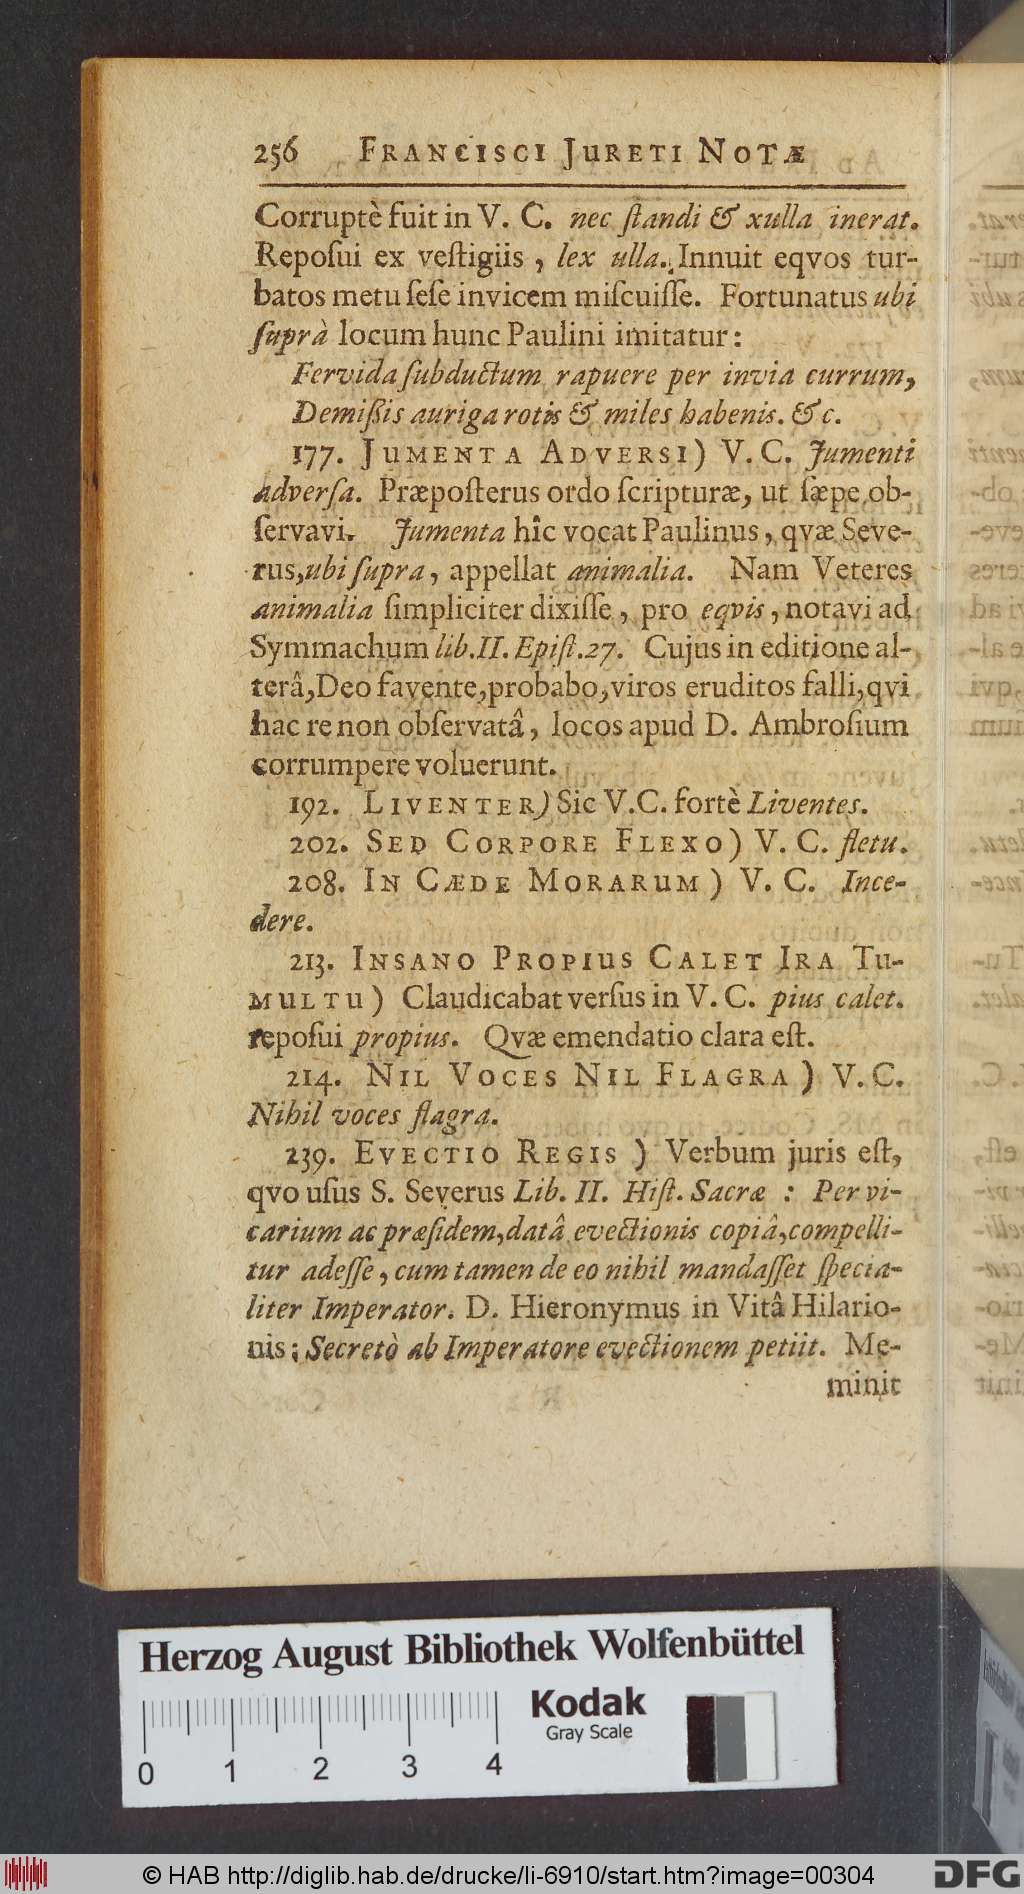 256 FRANCISCI JURETI NOTÆ
Corruptè fuit in V. C. nec ſtandi & xulla inerat.
Repoſui ex veſtigiis, lex ulla. Innuit eqvos tur-
batos metu ſeſe invicem miſcuiſſe. Fortunatus ubi
ſuprà locum hunc Paulini imitatur:
Fervida ſubductum rapuere per invia currum,
Demiſsis auriga rotis & miles habenis. &c.
177. JUMENTA ADVERSI) V. C. Jumenti
adverſa. Præpoſterus ordo ſcripturæ, ut ſæpe ob-
ſervavi. Jumenta hîc vocat Paulinus, qvæ Seve-
rus, ubi ſupra, appellat animalia. Nam Veteres
animalia ſimpliciter dixiſſe, pro eqvis, notavi ad
Symmachum lib. II. Epiſt. 27. Cujus in editione al-
terâ, Deo favente, probabo, viros eruditos falli, qvi
hac re non obſervatâ, locos apud D. Ambroſium
corrumpere voluerunt.
192. LIVENTER) Sic V. C. fortè Liventes.
202. SED CORPORE FLEXO) V. C. fletu.
208. IN CÆDE MORARUM) V. C. Ince-
dere.
213. INSANO PROPIUS CALET IRA TU-
MULTU) Claudicabat verſus in V. C. pius calet.
repoſui propius. Qvæ emendatio clara eſt.
214. NIL VOCES NIL FLAGRA) V. C.
Nihil voces flagra.
239. EVECTIO REGIS) Verbum juris eſt,
qvo uſus S. Severus Lib. II. Hiſt. Sacræ: Per vi-
carium ac præſidem, datâ evectionis copiâ, compelli-
tur adeſſe, cum tamen de eo nihil mandaſſet ſpecia-
liter Imperator. D. Hieronymus in Vitâ Hilario-
nis; Secretò ab Imperatore evectionem petiit. Me-
minit
Herzog August Bibliothek Wolfenbüttel
Kodak
Gray Scale
0 1 2 3 4
© HAB http://diglib.hab.de/drucke/li-6910/start.htm?image=00304
DFG